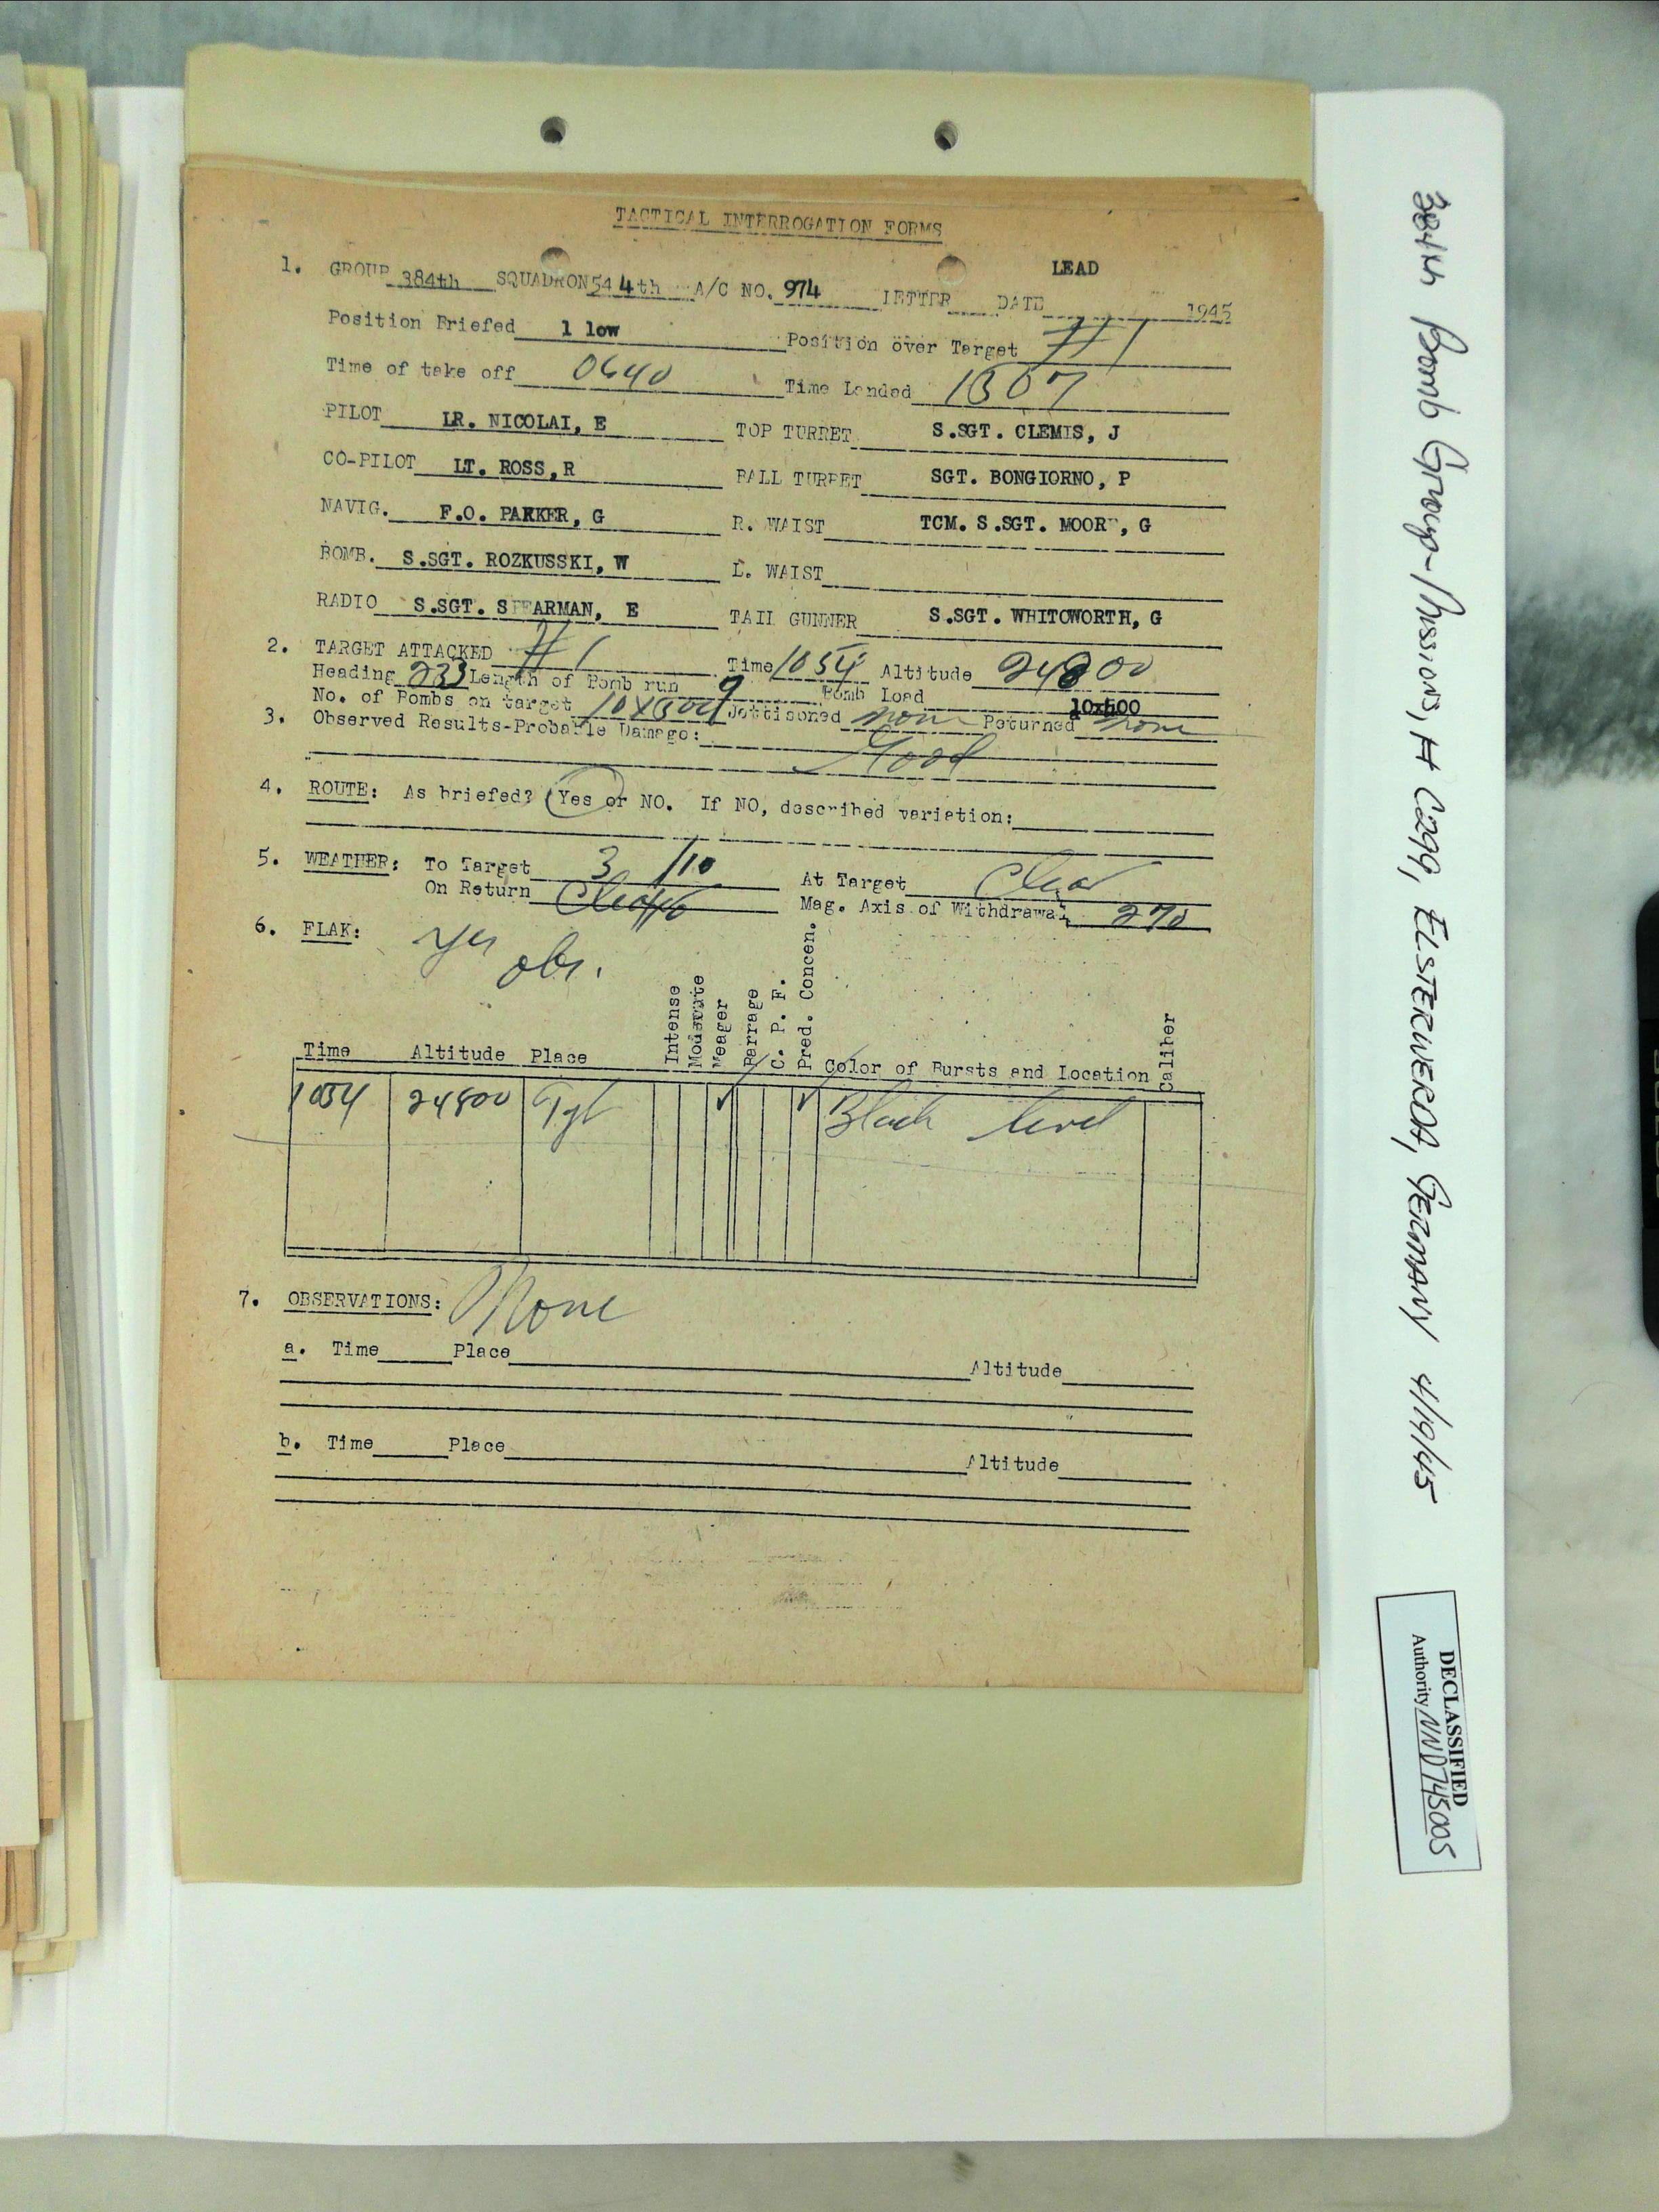 TACTICAL INTERROGATION FORMS
LEAD
1. GROUP 384th SQUADRON 544th A/C NO. 974 LETTER DATE 1945
Position Briefed 1 low Position over Target #1
Time of take off 0640 Time Landed 1507
PILOT LR. NICOLAI, E TOP TURRET S.SGT. CLEMIS, J
CO-PILOT LT. ROSS,R BALL TURRET SGT. BONGIORNO, P
NAVIG. F.O. PARKER, G R. WAIST TCM. S.SGT. MOORE, G
BOMB. S.SGT. ROZKUSSKI, W L. WAIST
RADIO S.SGT. SPEARMAN, E TAIL GUNNER S.SGT. WHITOWORTH, G
2. TARGET ATTACKED #1 Time 1054 Altitude 24800
Heading 233 Length of Bomb run 9 Bomb Load 10x500
No. of Bombs on target 10x500 Jettisoned none Returned none
3. Observed Results-Probable Damage:
Good
4. ROUTE: As briefed? Yes or NO. If NO, described variation:
5. WEATHER: To Target 3/10 At Target Clear
On Return Mag. Axis of Withdrawal 270
6. FLAK: Yes
obs.
Time Altitude Place Intense Moderate Meager Barrage C. P. F. Pred. Concen. Color of Bursts and Location Caliber
1054 24800 Tgt ✓ ✓ Black level
7. OBSERVATIONS: None
a. Time Place Altitude
b. Time Place Altitude
384th Bomb Group-Missions, # C299, ELSTERWERDA, GERMANY 4/19/45
DECLASSIFIED
Authority NND745005